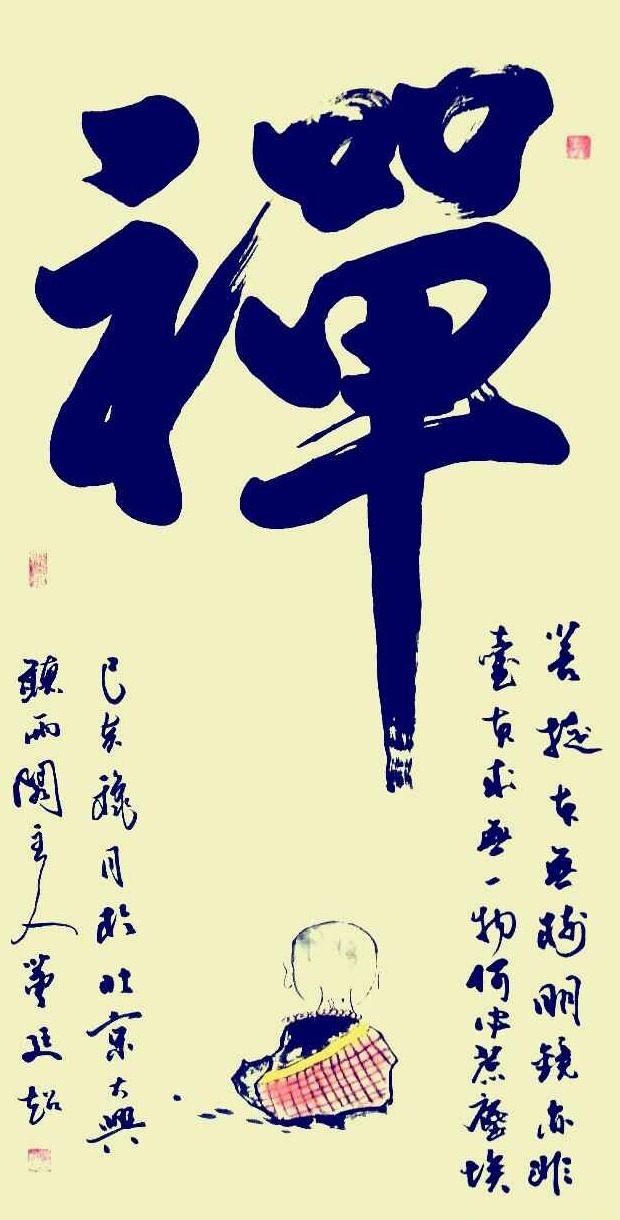 禪
菩提本無樹明鏡亦非
臺本來無一物何處惹塵埃
己亥穐月於北京大興
聽雨閣主人董廷超